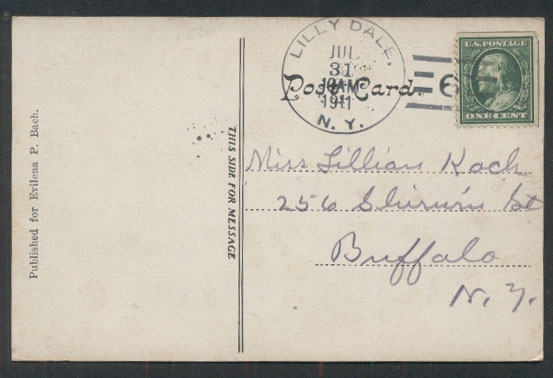 Published for Evilena P. Bach.
THIS SIDE FOR MESSAGE
LILLY DALE,
JUL
31
10AM
1911
N. Y.
Post Card.
6
U.S. POSTAGE
ONE CENT
Miss Lillian Koch
256 St
Buffalo
N. Y.